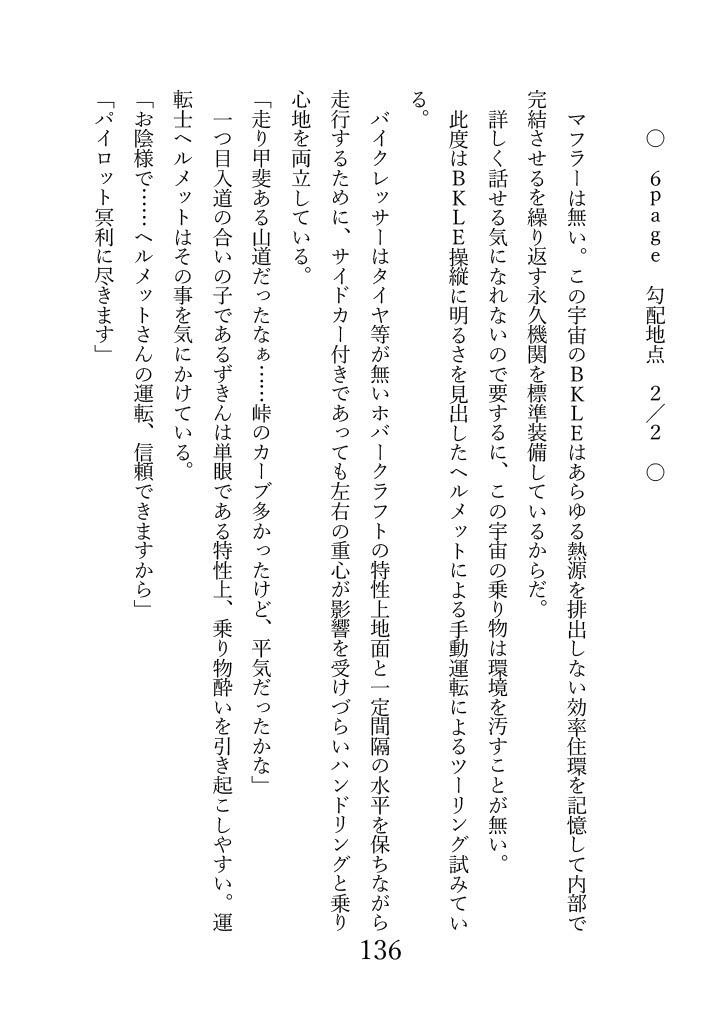 ○　6page　勾配地点　2／2　○
　マフラーは無い。この宇宙のBKLEはあらゆる熱源を排出しない効率住環を記憶して内部で
完結させるを繰り返す永久機関を標準装備しているからだ。
　詳しく話せる気になれないので要するに、この宇宙の乗り物は環境を汚すことが無い。
　此度はBKLE操縦に明るさを見出したヘルメットによる手動運転によるツーリング試みてい
る。
　バイクレッサーはタイヤ等が無いホバークラフトの特性上地面と一定間隔の水平を保ちながら
走行するために、サイドカー付きであっても左右の重心が影響を受けづらいハンドリングと乗り
心地を両立している。
「走り甲斐ある山道だったなぁ……峠のカーブ多かったけど、平気だったかな」
　一つ目入道の合いの子であるずきんは単眼である特性上、乗り物酔いを引き起こしやすい。運
転士ヘルメットはその事を気にかけている。
「お陰様で……ヘルメットさんの運転、信頼できますから」
「パイロット冥利に尽きます」
136